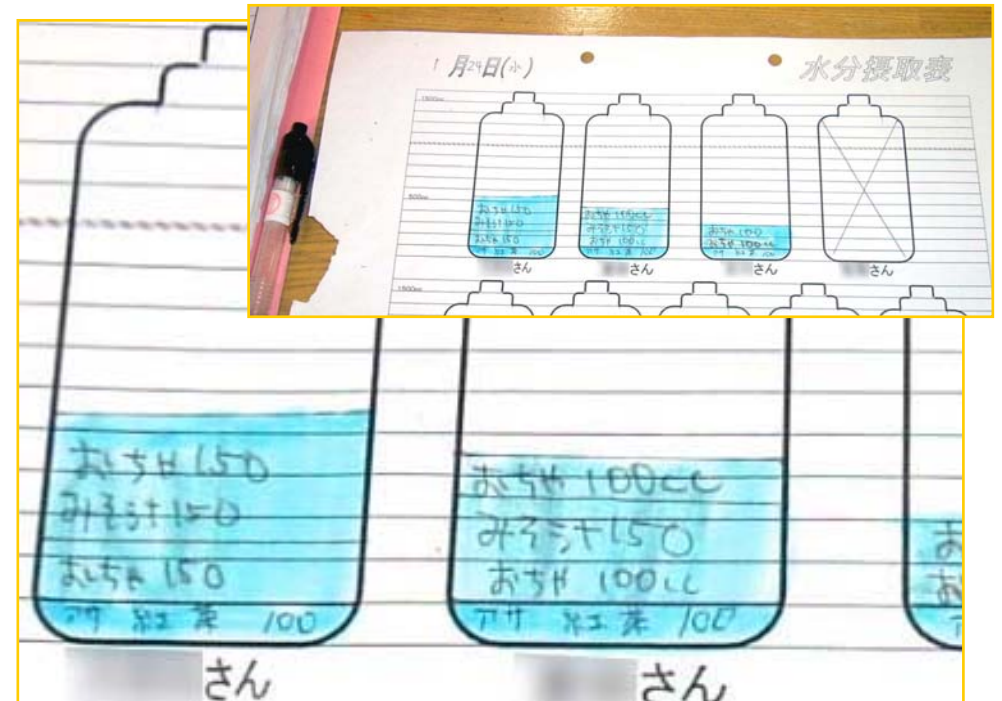 1月24日(水)
水分摂取表
1500cc
500cc
おちゃ150
みそ汁150
おちゃ150
アサ 紅茶 100
さん
おちゃ100cc
みそ汁150
おちゃ 100cc
アサ 紅茶 100
さん
おちゃ 100
おちゃ 100cc
アサ 紅茶 100
さん
さん
1500cc
おちゃ150
みそ汁150
おちゃ150
アサ 紅茶 100
さん
おちゃ100cc
みそ汁150
おちゃ 100cc
アサ 紅茶 100
さん